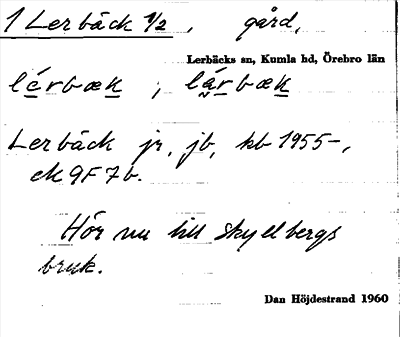 1 Lerbäck 1/2, gård,
Lerbäcks sn, Kumla hd, Örebro län
lérbæk ; lárbæk
Lerbäck jr, jb, kb 1955-,
ek 9F7b.
Hör nu till Skyllbergs
bruk.
Dan Höjdestrand 1960